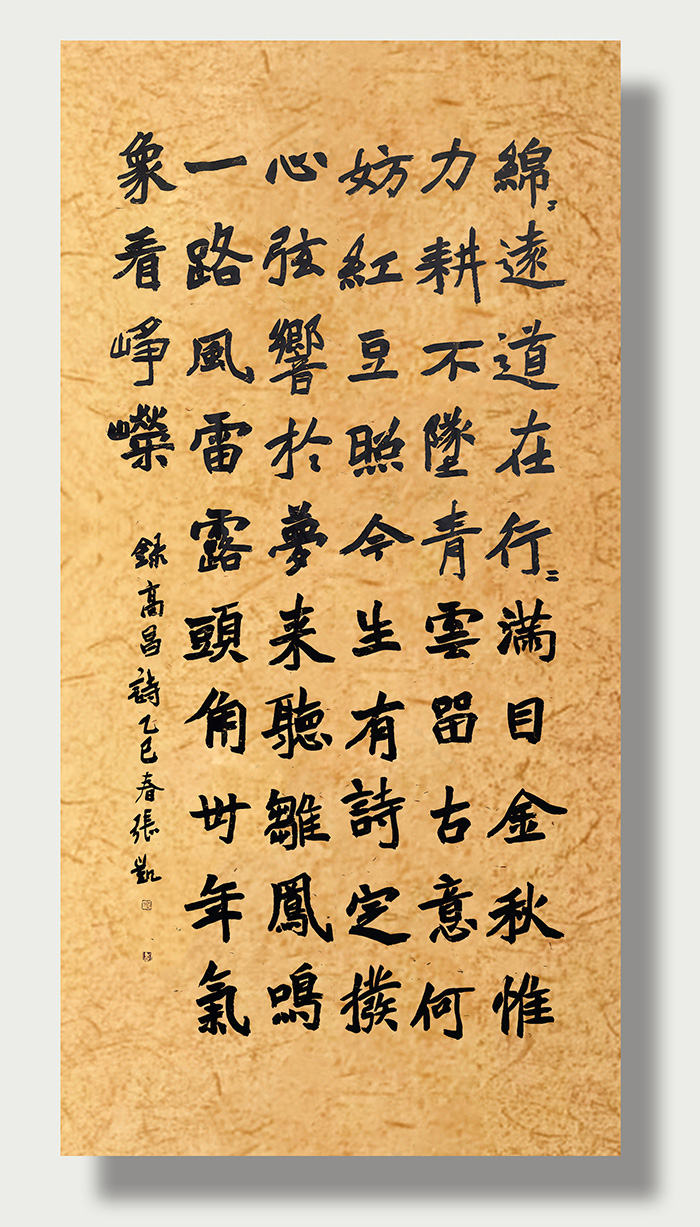 綿〻遠道在行〻滿目金秋惟
力耕不墜青雲留古意何
妨紅豆照今生有詩定撥
心弦響於夢來聽雛鳳鳴
一路風雷露頭角卅年氣
象看崢嶸
録高昌詩乙巳春張凱